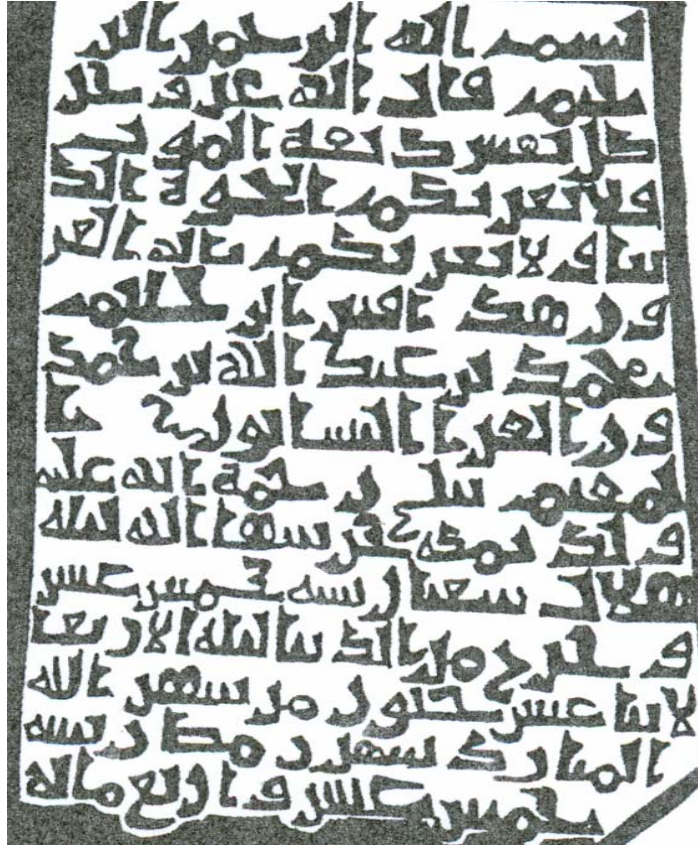 بسم الله الرحمن الر
حيم قال الله عز و جل
كل نفس ذائقة المو ت
فلا تغر نكم الحيوة الد
نيا و لا يغر نكم بالله الغر
و ر هذا قبر
محمد بن عبد الله بن
النيسابوري ا
لمقيم ر حمة الله عليه
و لد بمكة حرسها الله ليلة
هلال شعبان سنة خمس عشر
و خرج من الدنيا ليلة الاربعا
لاثنا عشر خلون من شهر الله
المبارك شهر رمضان سنة
خمس عشر و اربع مائة